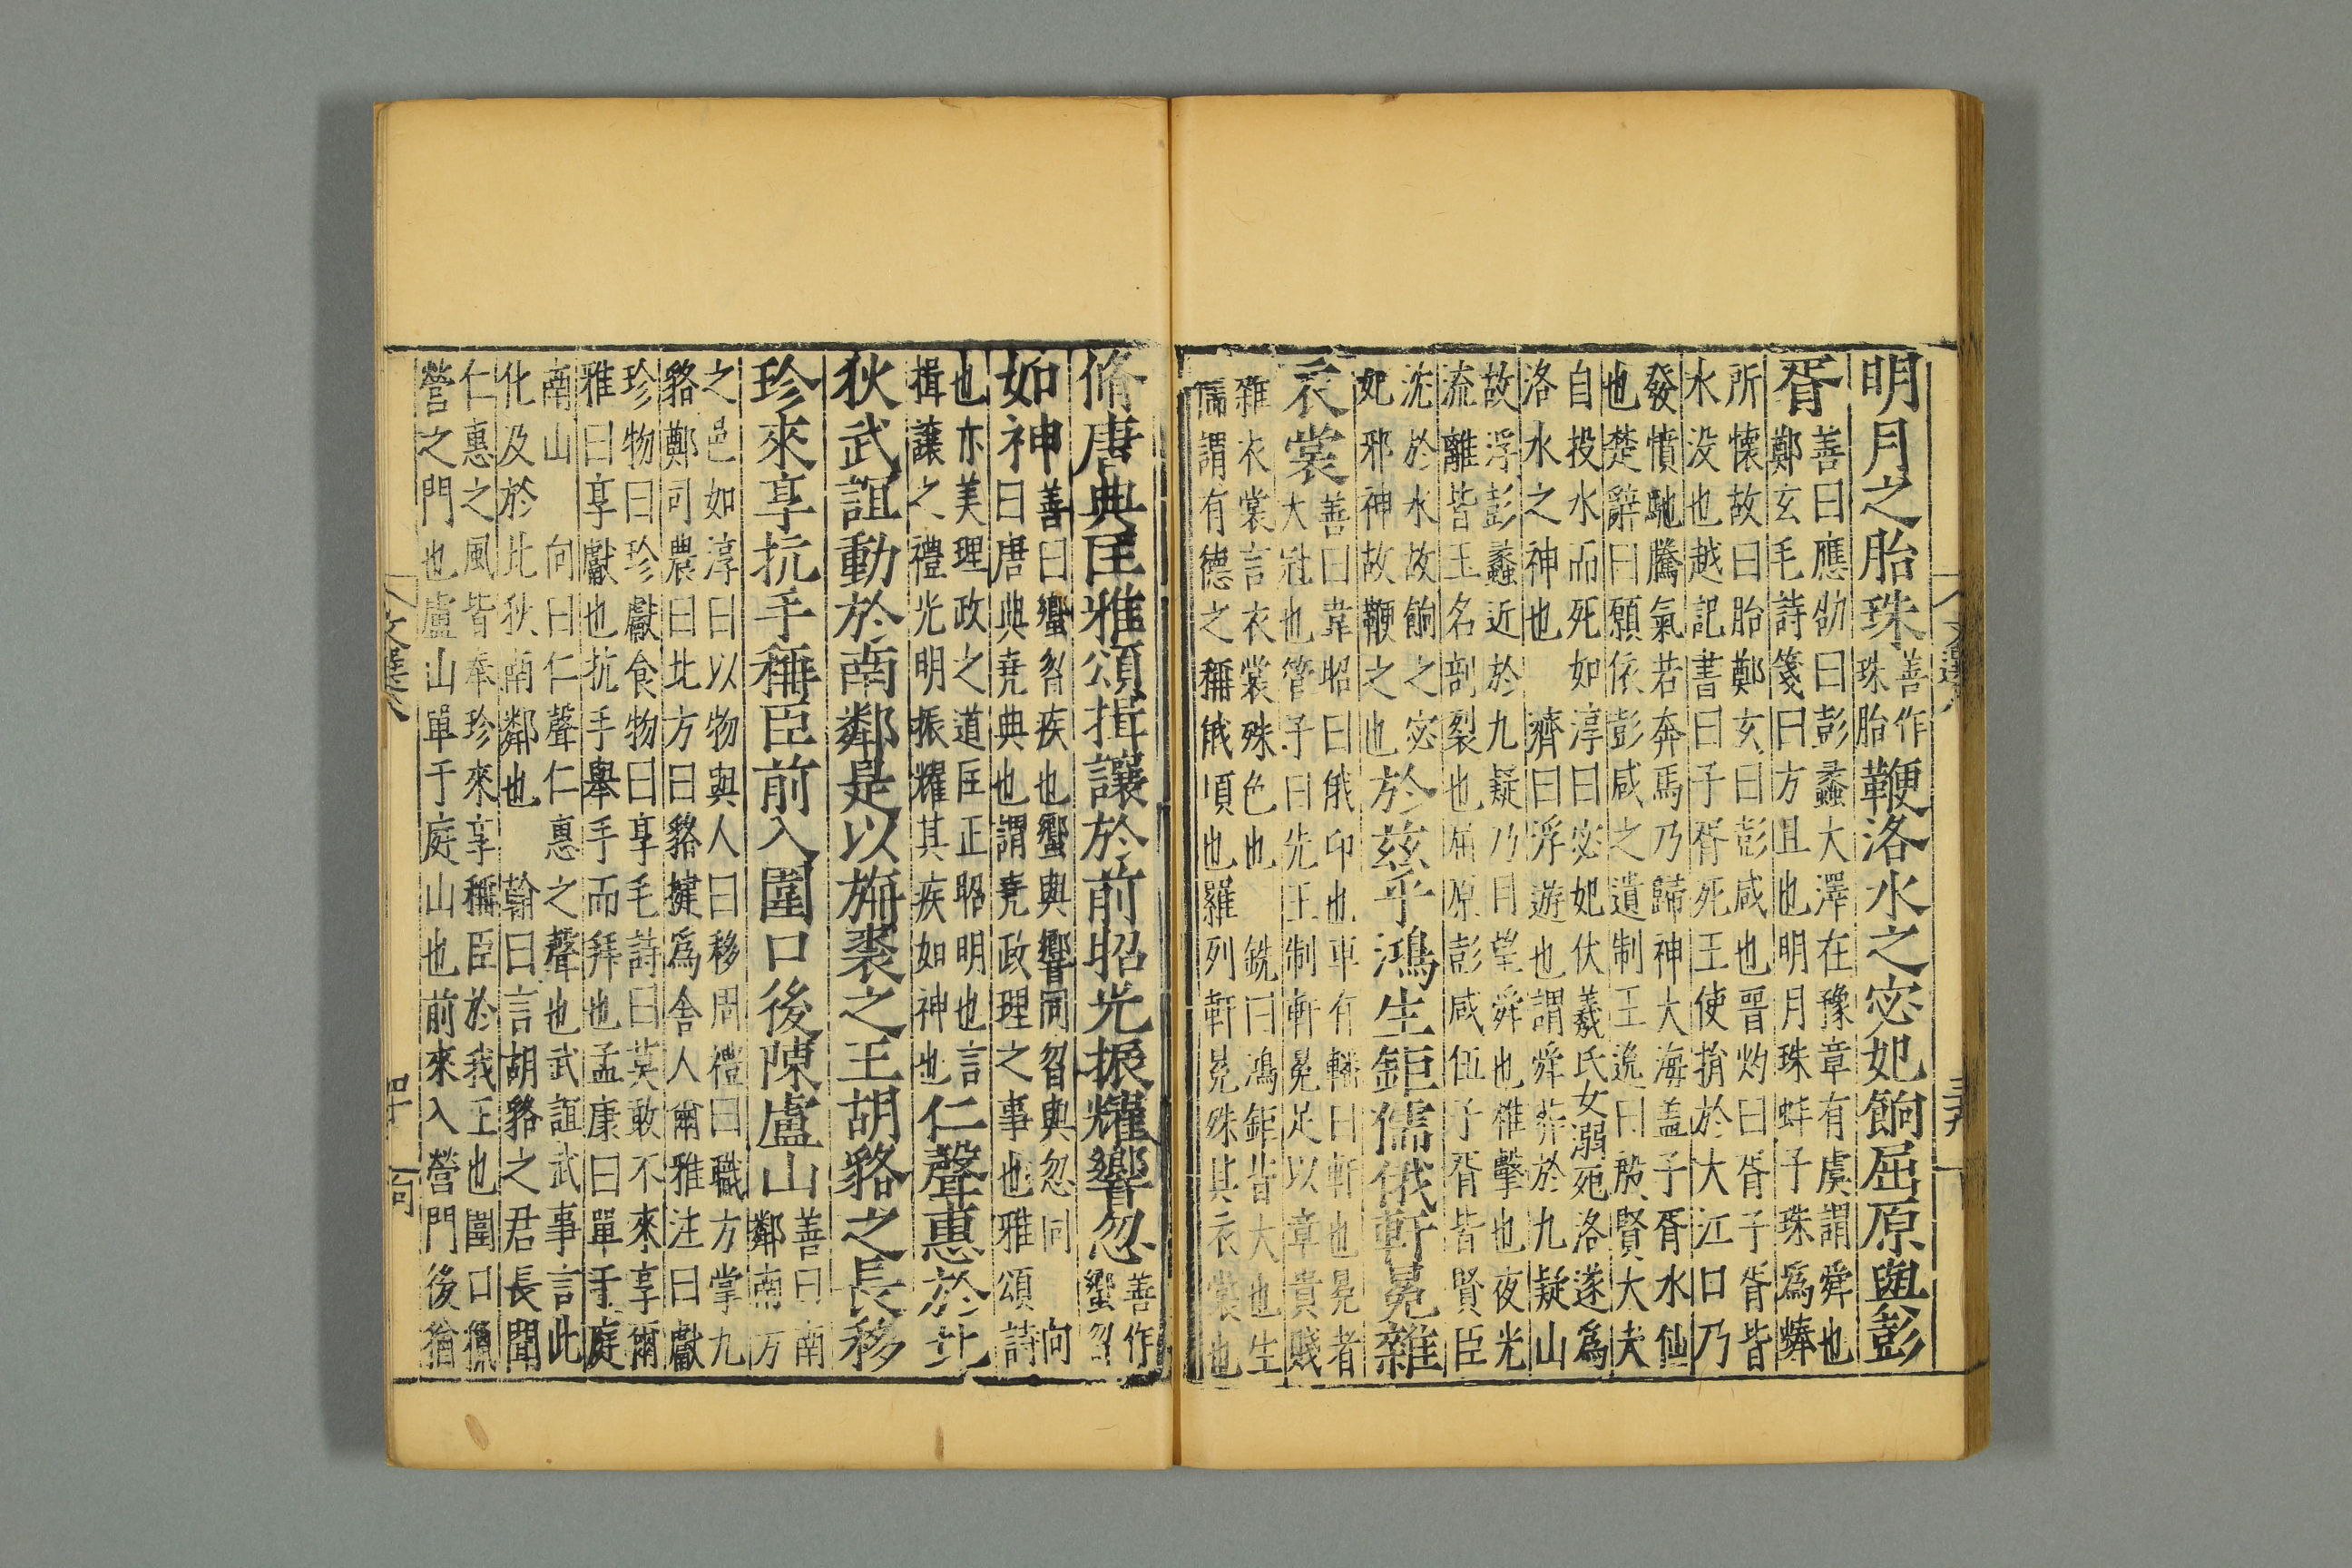 文選八
三十九
明月之胎珠善作珠胎鞭洛水之宓妃餉屈原與彭
胥善曰應劭曰彭蠡大澤在豫章有虞謂舜也鄭玄毛詩箋曰方且也明月珠蚌子珠爲蜯
所懷故曰胎鄭玄曰彭咸也晋灼曰胥子胥皆水没也越記書曰子胥死王使捐於大江口乃
發憤馳騰氣若奔馬乃歸神大海盖子胥水仙也楚辭曰願依彭咸之遺制王逸曰殷賢大夫
自投水而死 如淳曰宓妃伏羲氏女溺死洛遂爲洛水之神也 濟曰浮遊也謂舜葬於九疑山
故浮彭蠡近於九疑乃目望舜也椎擊也夜光流離皆玉名剖裂也屈原彭咸伍子胥皆賢臣
沈於水故餉之宓妃邪神故鞭之也於茲乎鴻生鉅儒俄軒冕雜
衣裳善曰韋昭曰俄卬也車有轓曰軒也冕者大冠也管子曰先王制軒冕足以章貴賤
雜衣裳言衣裳殊色也 銑曰鴻鉅皆大也生儒謂有德之稱俄頃也羅列軒冕殊其衣裳也
脩唐典匡雅頌揖讓於前昭光振耀響忽善作蠁曶
如神善曰蠁曶疾也蠁與響同曶與忽同 向曰唐典堯典也謂堯政理之事也雅頌詩
也亦美理政之道匡正昭明也言揖讓之禮光明振耀其疾如神也仁聲惠於北
狄武誼動於南鄰是以旃裘之王胡貉之長移
珍來享抗手稱臣前入圍口後陳盧山善曰南鄰南方
之邑如淳曰以物與人曰移周禮曰職方掌九貉鄭司農曰北方曰貉揵爲舍人爾雅注曰獻
珍物曰珍獻食物曰享毛詩曰莫敢不來享爾雅曰享獻也抗手舉手而拜也孟康曰單于庭
南山 向曰仁聲仁惠之聲也武誼武事言此化及於北狄南鄰也 翰曰言胡貉之君長聞
仁惠之風皆奉珍來享稱臣於我王也圍口獵營之門也盧山單于庭山也前來入營門後猶
文選八
四十